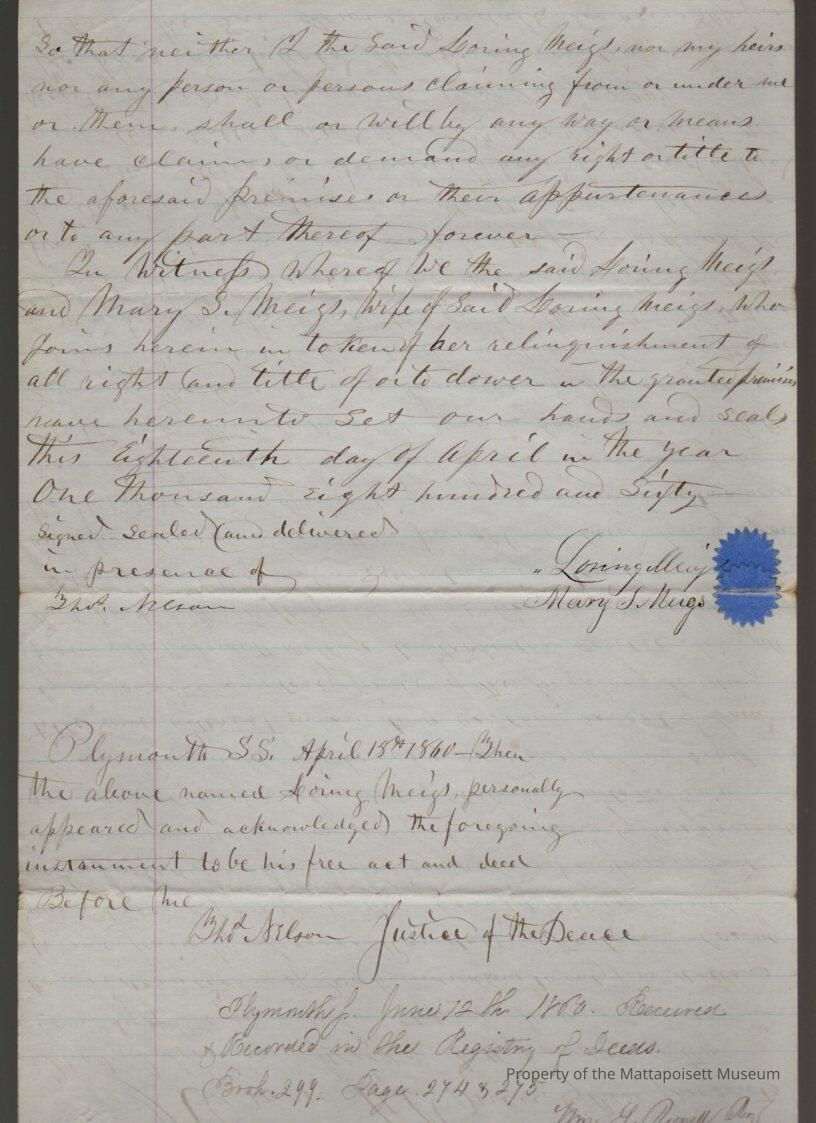 So that neither I the said Loring Meigs, nor my heirs
nor any person or persons claiming from or under me
or them, shall or will by any way or means
have claim, or demand any right or title to
the aforesaid premises or their appurtenances
or to any part thereof forever—
In Witness whereof We the said Loring Meigs
and Mary S. Meigs, Wife of Said Loring Meigs, who
Joins herein in token of her relinquishment of
all right and title of or to dower in the granted premises
have hereunto set our hands and seals
this Eighteenth day of April in the year
One Thousand Eight hundred and Sixty—
Signed sealed and delivered
in presence of
Loring Meigs
Thos. Nelson
Mary S. Meigs
Plymouth SS. April 18th 1860—Then
the above named Loring Meigs, personally
appeared and acknowledged the foregoing
instrument to be his free act and deed
Before Me
Thos. Nelson Justice of the Peace
Plymouth ss. June 12th. 1860. Received
& Recorded in the Registry of Deeds.
Book. 299. Page 274 & 275.
Property of the Mattapoisett Museum
Wm. S. Russell